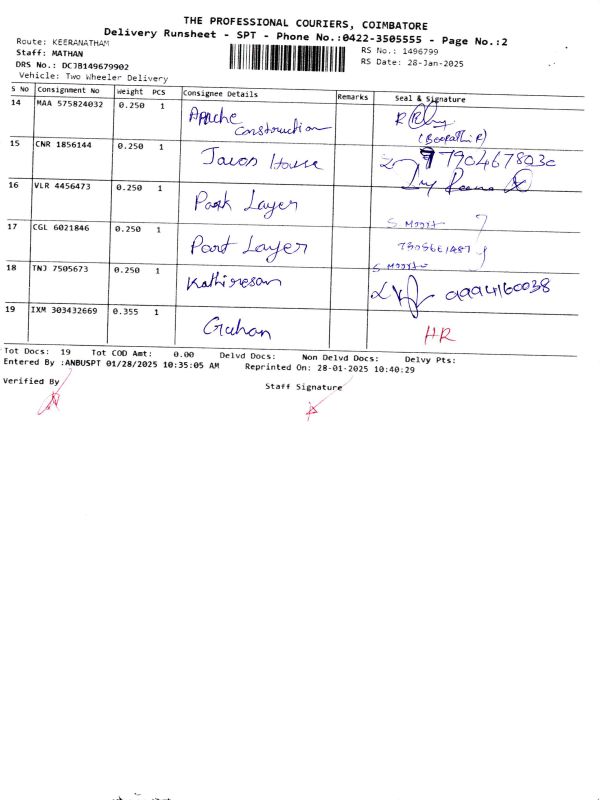 THE PROFESSIONAL COURIERS, COIMBATORE
Delivery Runsheet - SPT - Phone No.:0422-3505555 - Page No.:2
Route: KEERANATHAM
RS No.: 1496799
Staff: MATHAN
RS Date: 28-Jan-2025
DRS No.: DCJB149679902
Vehicle: Two Wheeler Delivery
S No Consignment No Weight PCS Consignee Details Remarks Seal & Signature
14 MAA 575824032 0.250 1 Apache Construction
(Boopathi R)
15 CNR 1856144 0.250 1 House 790467803c
16 VLR 4456473 0.250 1 Park Layer
17 CGL 6021846 0.250 1 Part Layer
18 TNJ 7505673 0.250 1 Kathiresan 9994160038
19 IXM 303432669 0.355 1 Guhan HR
Tot Docs: 19 Tot COD Amt: 0.00 Delvd Docs: Non Delvd Docs: Delvy Pts:
Entered By :ANBUSPT 01/28/2025 10:35:05 AM Reprinted On: 28-01-2025 10:40:29
Verified By
Staff Signature